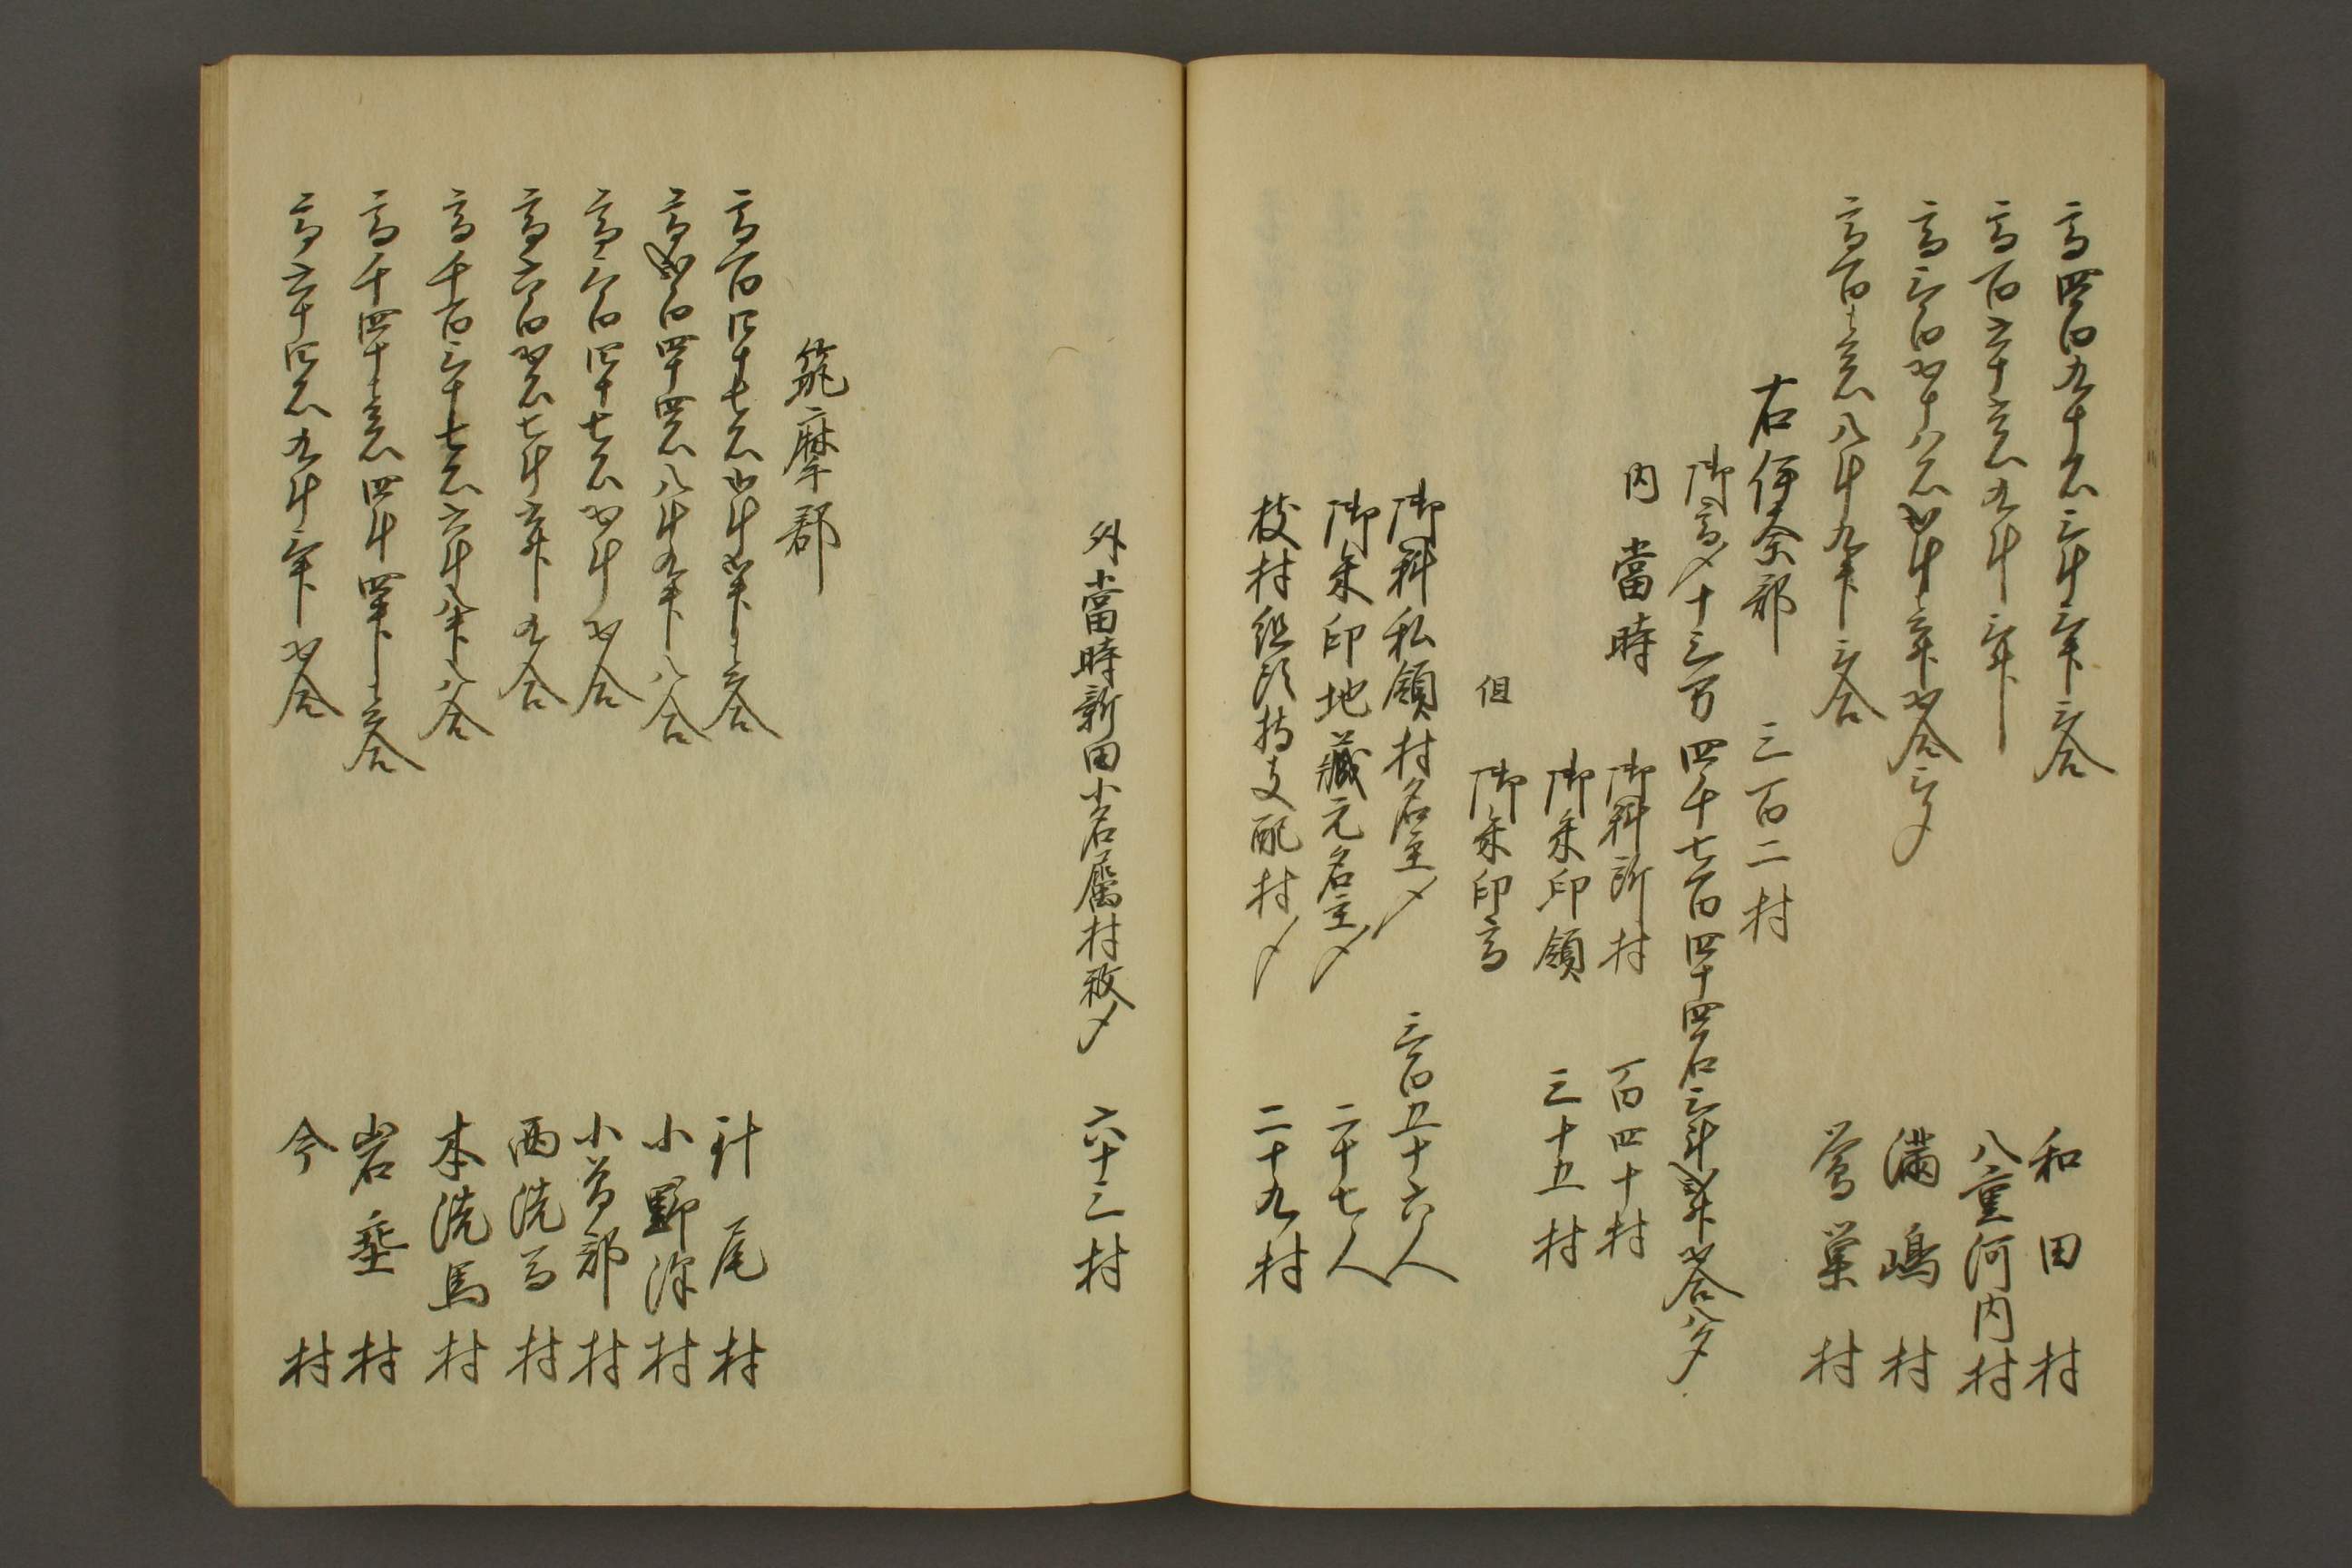 高四百九十石三斗三升三合 和田村
高百六十六石九斗三升 八重河内村
高三百弐十八石四斗六升弐合三夕 満嶋村
高百十六石八斗九升六合 鶯巣村
右伊奈郡 三百二村
御高〆十三万四千七百四十四石三斗 升弐合八夕
内 當時 御料所村 百四十村
御朱印領 三十五村
但 御朱印高
御料私領村名主〆 三百五十六人
御朱印地蔵元名主〆 二十七人
枝村組頭持支配村〆 二十九村
外當時新田小名属村数〆 六十三村
筑摩郡
高百四十七石 斗 升六合 針尾村
高 百四十四石八斗九升八合 小野沢村
高六百四十七石弐斗弐合 小曽部村
高六百弐石七斗六升九合 西洗馬村
高千百三十七石六斗八升八合 本洗馬村
高千四十六石四斗四升六合 岩垂村
高六十四石九斗三升弐合 今村